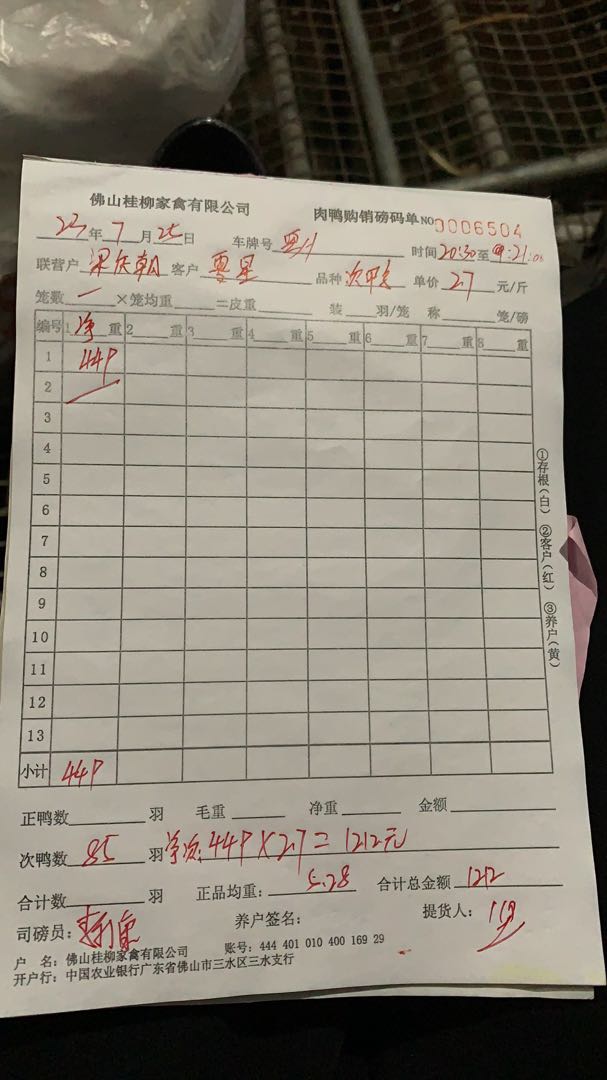 佛山桂柳家禽有限公司 肉鸭购销磅码单 NO 0006504
23年7月25日 车牌号 时间20:30至21:0
联营户 梁庆朝 客户 粤星 品种 单价 2.7 元/斤
笼数 一 ×笼均重 =皮重 装 羽/笼 称 笼/磅
编号 1 净 重 2 重 3 重 4 重 5 重 6 重 7 重 8 重
1 449
2
3
4
5
6
7
8
9
10
11
12
13
小计 449
①存根(白) ②客户(红) ③养户(黄)
正鸭数 羽 毛重 净重 金额
次鸭数 85 羽 449×2.7=1212元
合计数 羽 正品均重: 5.28 合计总金额 1212
司磅员: 养户签名: 提货人:
户 名: 佛山桂柳家禽有限公司 账号: 444 401 010 400 169 29
开户行: 中国农业银行广东省佛山市三水区三水支行